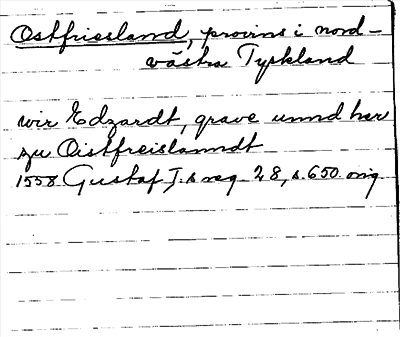 Ostfriesland, provins i nord-
västra Tyskland
wir Edzardt, grave unnd her
zu Oistfreislanndt
1558 Gustaf I.s reg 28, s. 650. orig